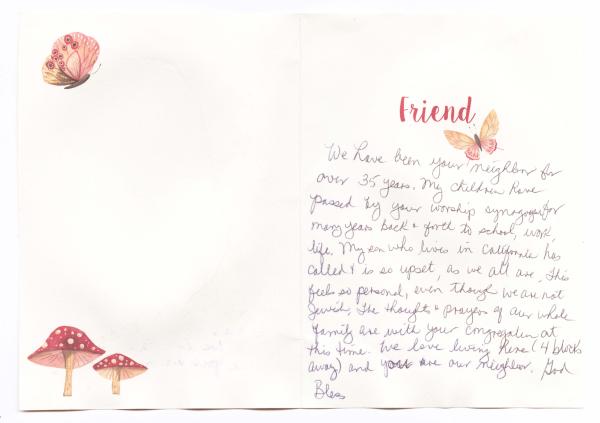 Friend
We have been your neighbor for
over 35 years. My children have
passed by your worship synagogue for
many years back & forth to school, work,
life. My son who lives in California has
called & is so upset, as we all are. This
feels so personal, even though we are not
Jewish. The thoughts & prayers of our whole
family are with your congregation at
this time. We love living here (4 blocks
away) and you are our neighbor. God
Bless